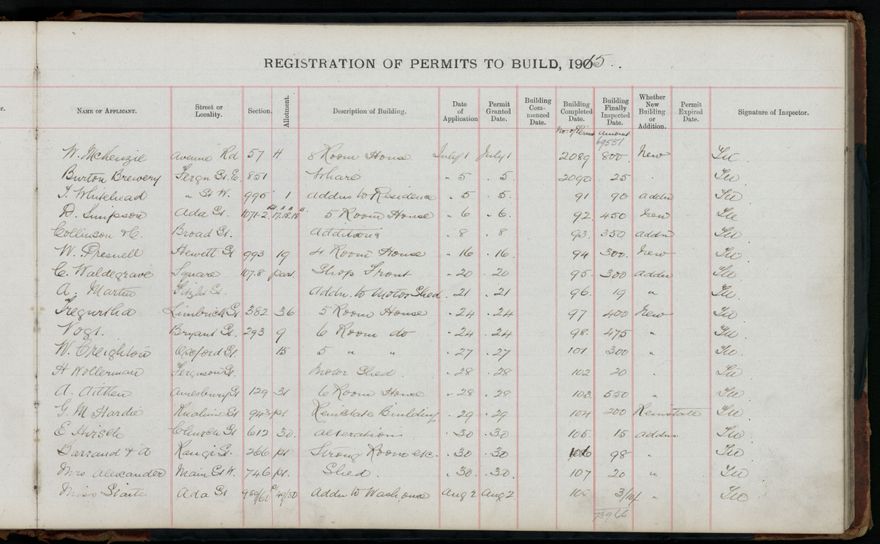 REGISTRATION OF PERMITS TO BUILD, 1915..
NAME OF APPLICANT. Street or Locality. Section. Allotment. Description of Building. Date of Application Permit Granted Date. Building Commenced Date. Building Completed Date. Building Finally Inspected Date. Whether New Building or Addition. Permit Expired Date. Signature of Inspector.
No. of Permit Amount
69551
W. McKenzie Avenue Rd 57 4 8 Room House July 1 July 1 2089 800 New
Burton Brewery Fergn St E. 851 Whare " 5 " 5. 2090 25
T. Whitehead " St W. 995 1 Addns to Residence " 5 " 5. 91 90 addn
B. Simpson Ada St. 1071.2 5 Room House " 6 " 6. 92 450 New
Collinson & C. Broad St. Additions " 8 " 8 93. 350 addn
W. Presnell Hewitt St 993 19 4 Room House " 16 " 16. 94 300. New
C. Waldegrave Square 107.8 part Shop Front " 20 " 20 95 300 addn
A. Martin Fitzh St. Addn. to Motor Shed " 21 " 21 96. 19 "
Tregurtha Limbrick St 382 36 5 Room House " 24 " 24 97 400 New
Vogt. Bryant St. 293 9 6 Room do " 24 " 24 98. 475 "
W. Creighton Oxford St. 15 5 " " " 27 " 27 101 300 "
H Wollerman Ferguson St. Motor Shed. " 28 " 28 102 20 "
A. Aitken Amesbury St 129 31 6 Room House " 28 " 28 103. 550 "
G. M Hardie St 942 pt Reinstate Building " 29 " 29 104 200 Reinstate
E St 612 30. alteration " 30 " 30 105. 15 addn
Barraud & A Rangi St. 266 pt. Strong Room etc. " 30 " 30 106 98 "
Mrs Alexander Main St W. 746 pt. Shed. " 30. " 30. 107 20 "
Miss Ada St 49/50 Addn to Washouse Aug 2 Aug 2 10 3/10/ "